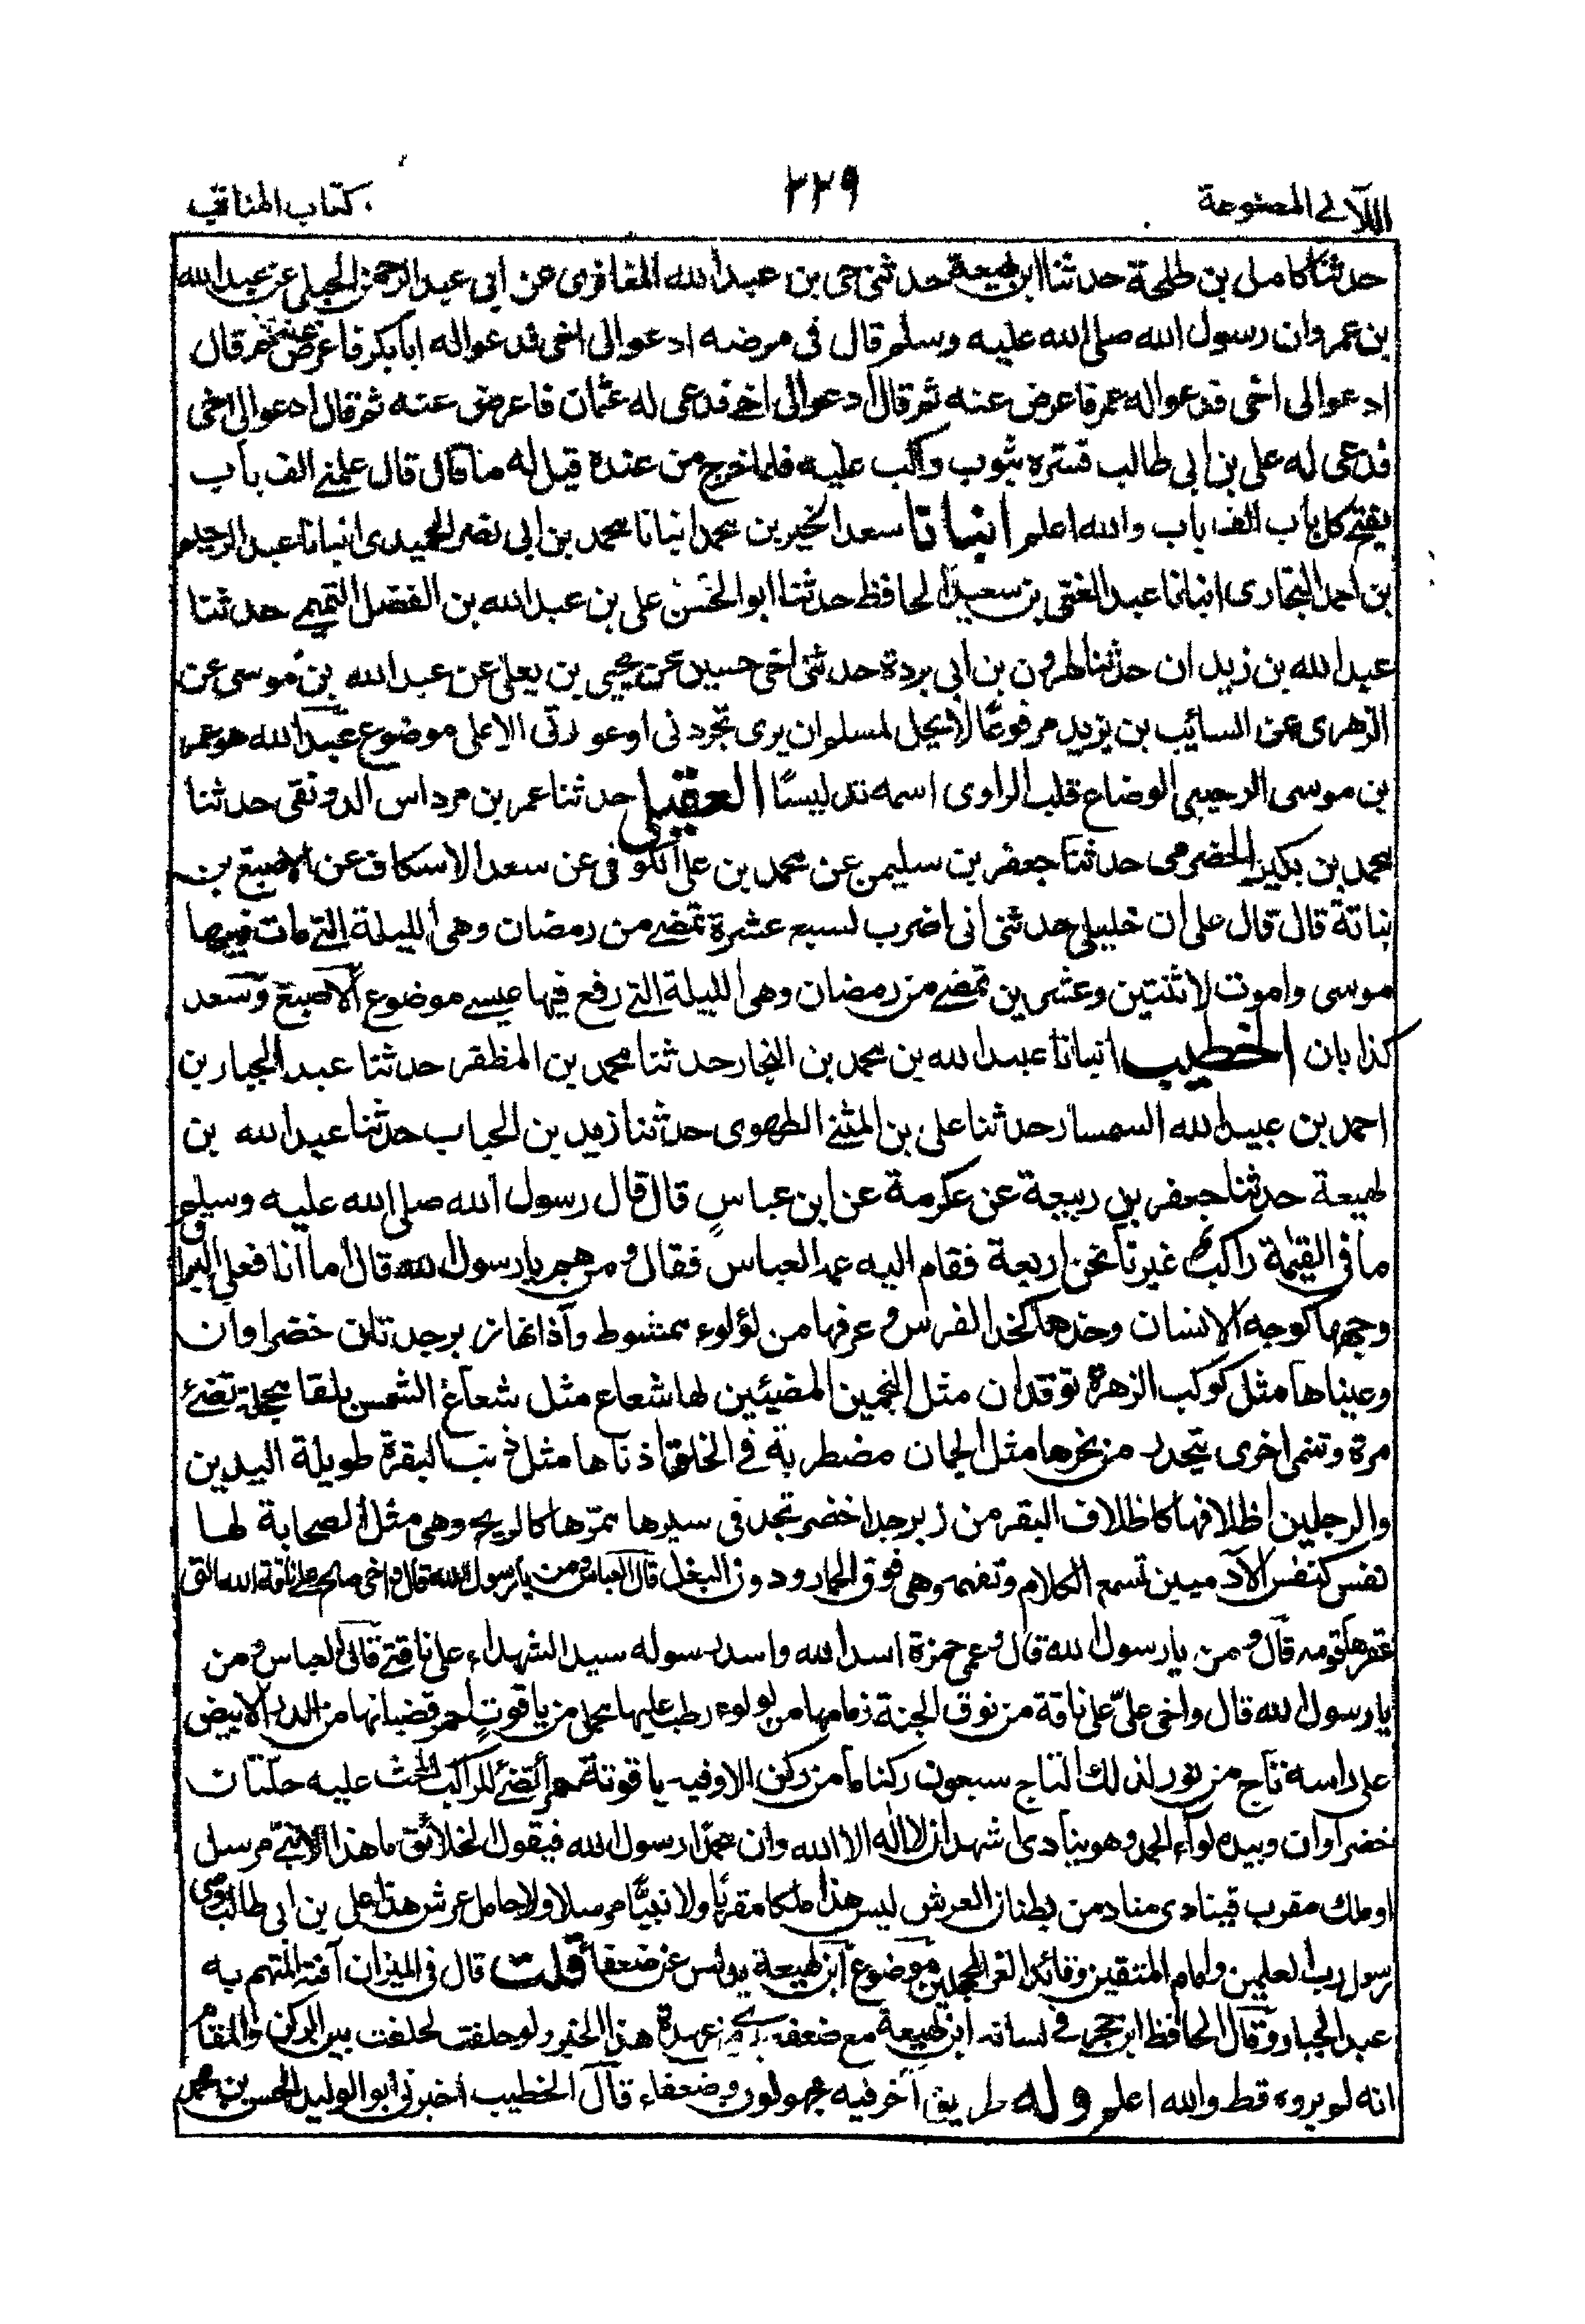 اللآلی المصنوعة
٢٢٩
كتاب المناقب
حدثنا كامل بن طلحة حدثنا ابن لهيعة حدثنی حی بن عبد الله المعافری عن ابی عبد الرحمن الحبلی عن عبد الله
بن عمرو ان رسول الله صلی الله علیه وسلم قال فی مرضه ادعوا لی اخی فدعوا له ابا بکر فاعرض عنه ثم قال
ادعوا لی اخی فدعوا له عمر فاعرض عنه ثم قال ادعوا لی اخی فدعی له عثمان فاعرض عنه ثم قال ادعوا لی اخی
فدعی له علی بن ابی طالب فستره بثوب واکب علیه فلما خرج من عنده قیل له ما قال قال علمنی الف باب
یفتح کل باب الف باب والله اعلم انبانا سعد الخیر بن محمد انبانا محمد بن ابی نصر الحمیدی انبانا عبد الرحیم
بن احمد البخاری انبانا عبد الغنی بن سعید الحافظ حدثنا ابو الحسن علی بن عبد الله بن الفضل التمیمی حدثنا
عبد الله بن زیدان حدثنا هرون بن ابی بردة حدثنی اخی حسین عن یحیی بن یعلی عن عبد الله بن موسی عن
الزهری عن السائب بن یزید مرفوعًا لا یحل لمسلم ان یری تجردنی او عورتی الا علی موضوع عبد الله هو عمر
بن موسی الوجیهی الوضاع قلب الراوی اسمه تدلیسًا العقیلی حدثنا عمر بن مرداس الدونقی حدثنا
محمد بن بکیر الحضرمی حدثنا جعفر بن سلیمن عن محمد بن علی الکوفی عن سعد الاسکاف عن الاصبغ بن
نباتة قال قال علی ان خلیلی حدثنی انی اضرب لسبع عشرة تمضی من رمضان وهی اللیلة التی مات فیها
موسی واموت لاثنتین وعشرین تمضی من رمضان وهی اللیلة التی رفع فیها عیسی موضوع الاصبغ وسعد
کذابان الخطیب انبانا عبید الله بن محمد بن النجار حدثنا محمد بن المظفر حدثنا عبد الجبار بن
احمد بن عبید الله السمسار حدثنا علی بن المثنی الطهوی حدثنا زید بن الحباب حدثنا عبد الله بن
لهیعة حدثنا جعفر بن ربیعة عن عکرمة عن ابن عباس قال قال رسول الله صلی الله علیه وسلم
ما فی القیمة راکب غیرنا نحن اربعة فقام الیه عمه العباس فقال ومن هم یا رسول الله قال اما انا فعلی البراق
وجهها کوجه الانسان وخدها کخد الفرس وعرفها من لؤلوء ممشوط واذناها زبرجدتان خضراوان
وعیناها مثل کوکب الزهرة توقدان مثل النجمین المضیئین لها شعاع مثل شعاع الشمس بلقا محجلة تضئ
مرة وتنمی اخری یتحدر من نحرها مثل الجمان مضطربة فی الخلق اذناها مثل ذنب البقرة طویلة الیدین
والرجلین اظلافها کاظلاف البقر من زبرجد اخضر تجد فی سیرها ممرها کالریح وهی مثل السحابة لها
نفس کنفس الآدمیین تسمع الکلام وتفهمه وهی فوق الحمار ودون البغل قال العباس ومن یا رسول الله قال واخی صالح علی ناقة الله التی
عقرها قومه قال ومن یا رسول الله قال وعمی حمزة اسد الله واسد رسوله سید الشهداء علی ناقتی قال العباس ومن
یا رسول الله قال واخی علیّ علی ناقة من نوق الجنة زمامها من لولوء رطب علیها محمل من یاقوت احمر قضبانها من الدر الابیض
علی راسه تاج من نور لذلك التاج سبعون رکنا ما من رکن الا وفیه یاقوتة حمرا تضئ للراکب المحث علیه حلتان
خضراوان وبیده لواء الحمد وهو ینادی اشهد ان لا اله الا الله وان محمدًا رسول الله فیقول الخلائق ما هذا الا نبی مرسل
او ملك مقرب فینادی مناد من بطنان العرش لیس هذا ملکا مقربا ولا نبیًّا مرسلا ولا حامل عرش هذا علی بن ابی طالب وصی
رسول رب العلمین وامام المتقین وقائد الغر المحجلین موضوع ابن لهیعة یدلس عن ضعفا قلت قال فی المیزان آفته المتهم به
عبد الجبار وقال الحافظ ابن حجر فی لسانه ابن لهیعة مع ضعفه برئ من عهدة هذا الخبر ولو حلفت لحلفت بین الرکن والمقام
انه لم یروه قط والله اعلم وله طریق آخر فیه مجهولون وضعفاء قال الخطیب اخبرنی ابو الولید الحسن بن محمد